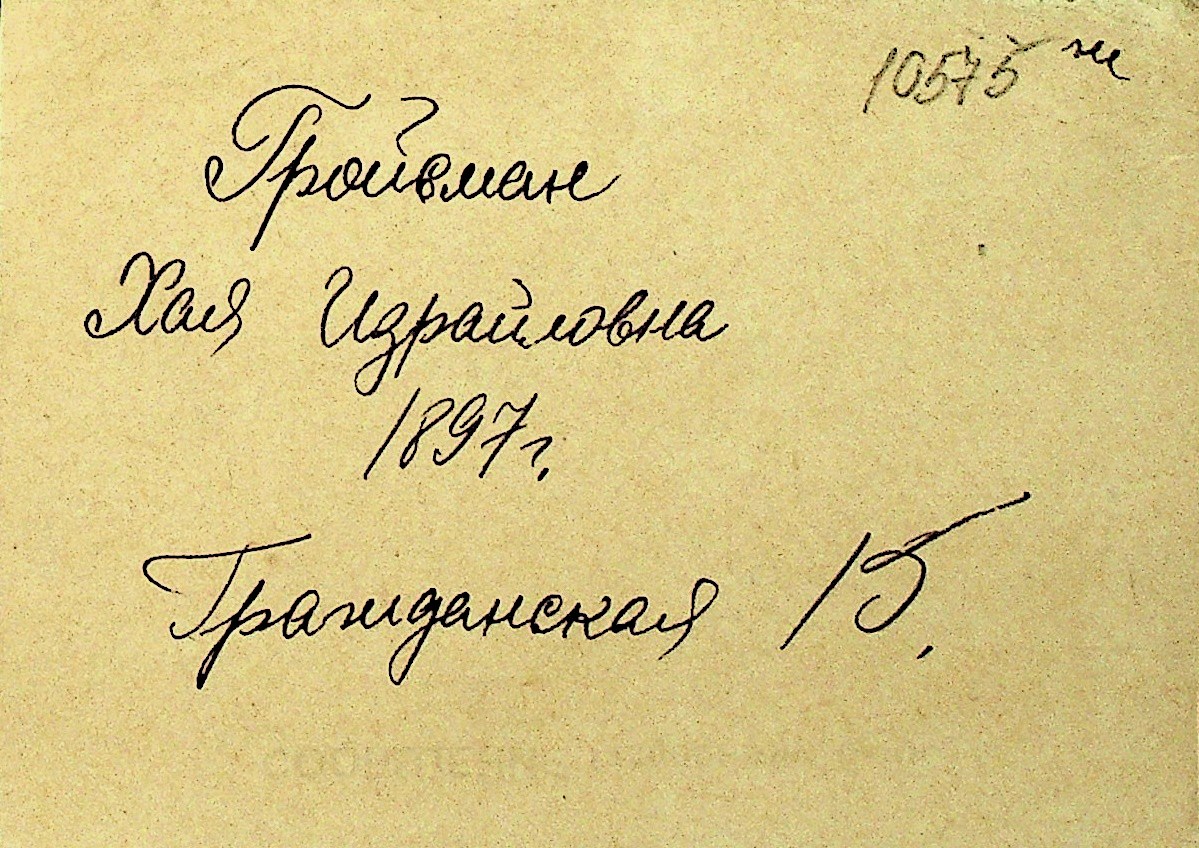 10575 ж
Гройсман
Хая Израйловна
1897г.
Гражданская 15.